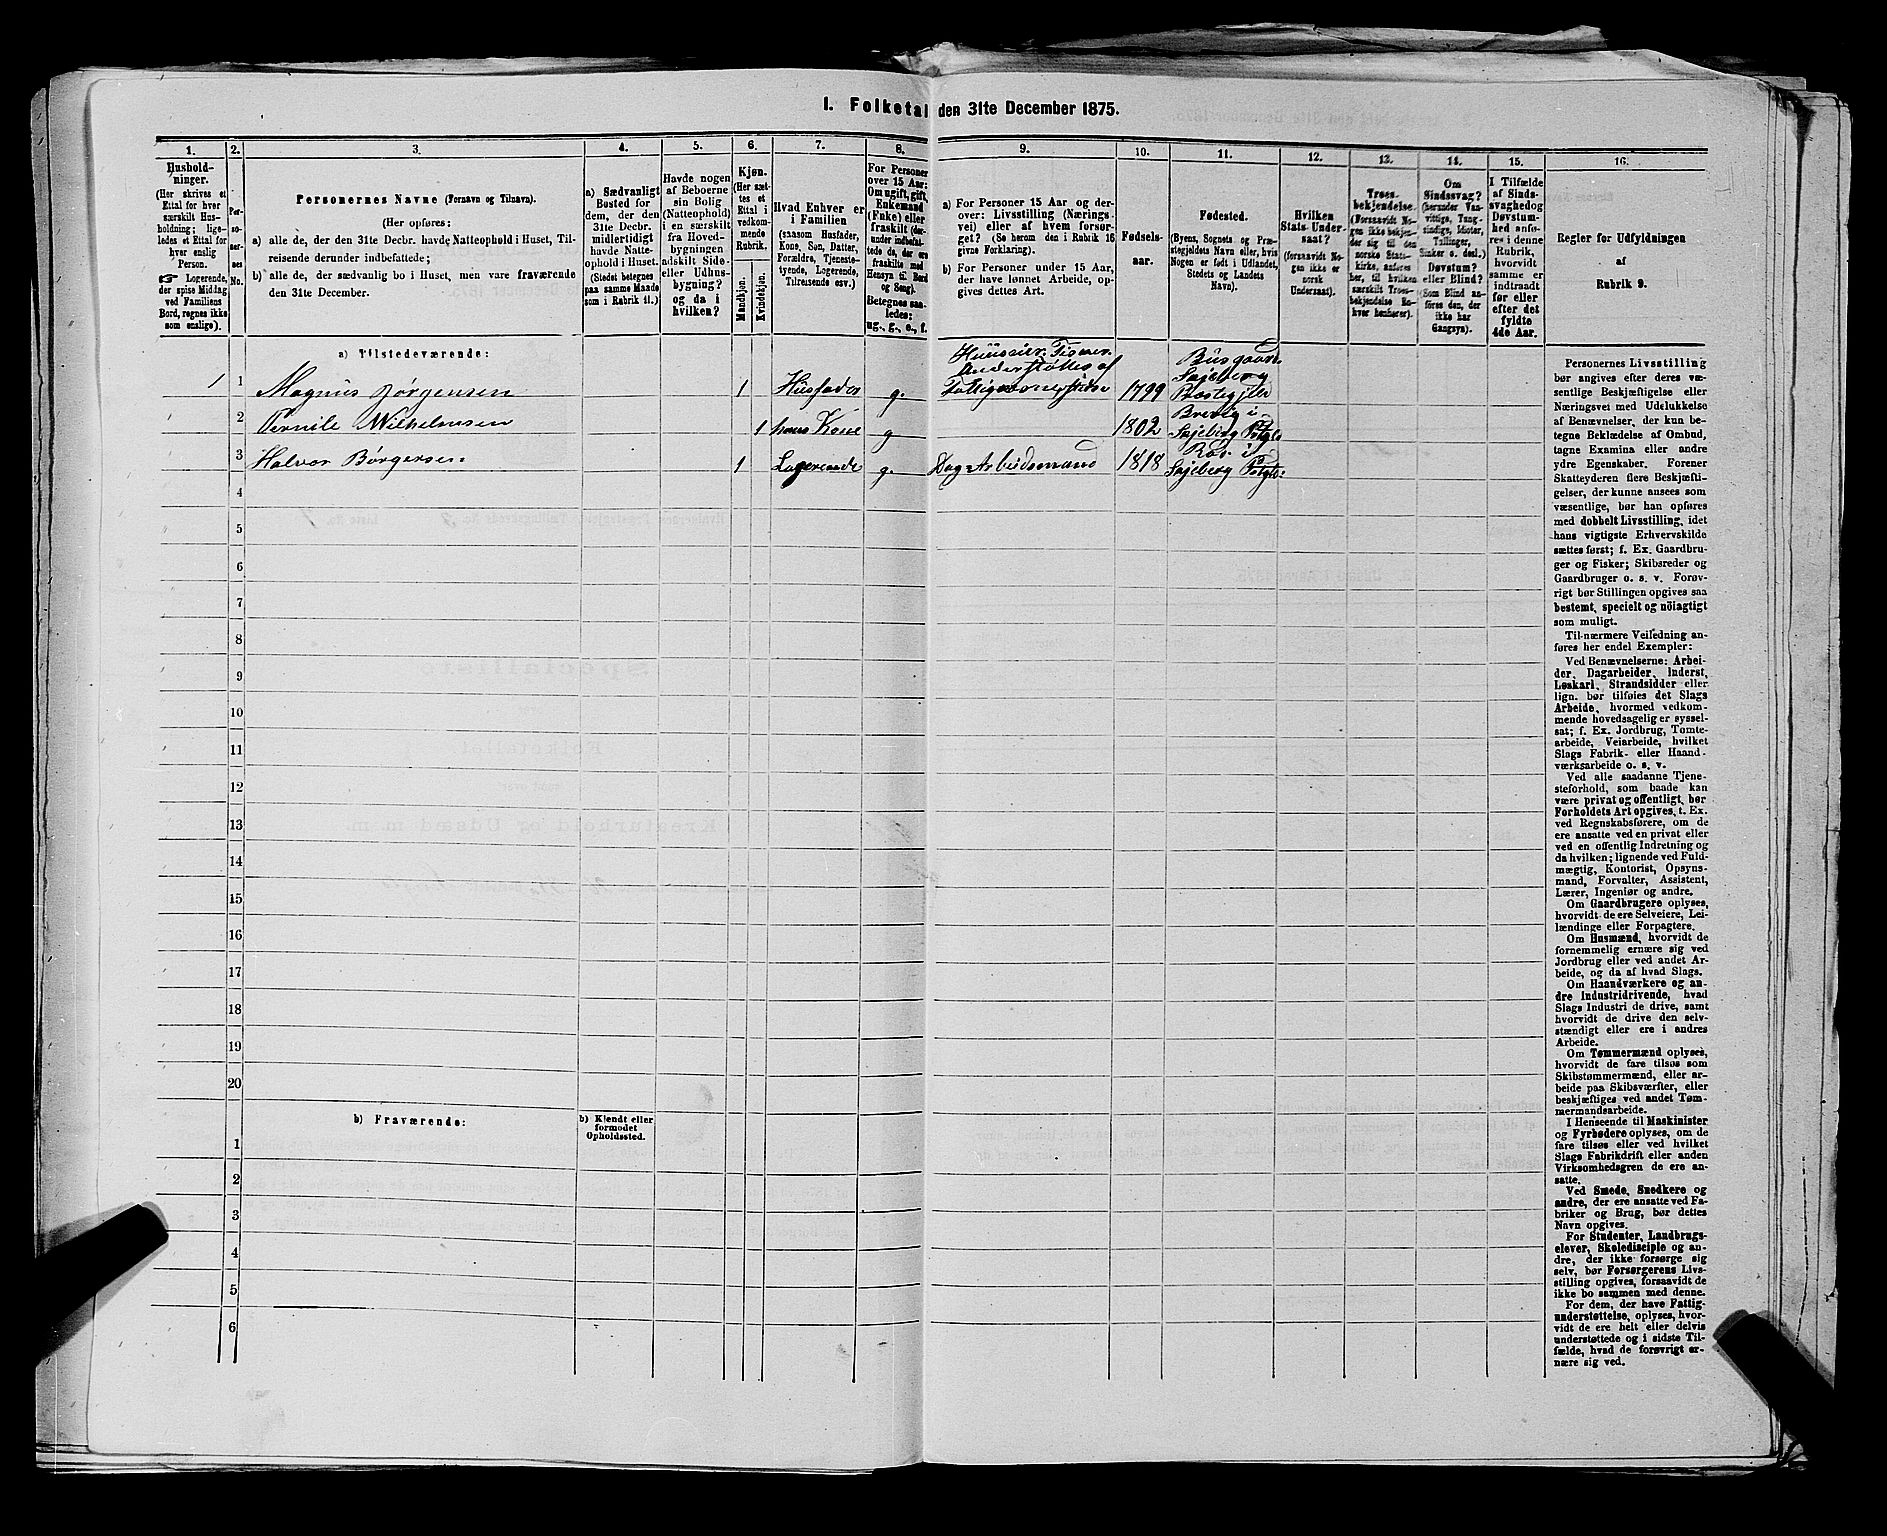 I. Folketal den 31te December 1875.
1.
Hushold-
ninger.
(Her skrives et
Ettal for hver
særskilt Hus-
holdning; lige-
ledes et Ettal for
hver enslig
Person.
☞ Logerende,
der spise Middag
ved Familiens
Bord, regnes ikke
som enslige).
2.
Per-
so-
ner-
nes
No.
3.
Personernes Navne (Fornavn og Tilnavn).
(Her opføres:
a) alle de, der den 31te Decbr. havde Natteophold i Huset, Til-
reisende derunder indbefattede;
b) alle de, der sædvanlig bo i Huset, men vare fraværende
den 31te December.
4.
a) Sædvanligt
Bosted for
dem, der den
31te Decbr.
midlertidigt
havde Natte-
ophold i Huset.
(Stedet betegnes
paa samme Maade
som i Rubrik 11.)
5.
Havde nogen
af Beboerne
sin Bolig
(Natteophold)
i en særskilt
fra Hoved-
bygningen
adskilt Side-
eller Udhus-
bygning?
og da i
hvilken?
6.
Kjøn.
(Her sæt-
tes et
Ettal i
vedkom-
mende
Rubrik.
Mandkjøn.
Kvindekjøn.
7.
Hvad Enhver er
i Familien
(saasom Husfader,
Kone, Søn, Datter,
Forældre, Tjeneste-
tyende, Logerende,
Tilreisende osv.)
8.
For Personer
over 15 Aar:
Om ugift, gift,
Enkemand
(Enke) eller
fraskilt (der-
under indbefat-
tede de, der ere
fraskilte med
Hensyn til Bord
og Seng).
Betegnes saa-
ledes:
ug., g., e., f.
9.
a) For Personer 15 Aar og der-
over: Livsstilling (Nærings-
vei) eller af hvem forsør-
get? (Se herom den i Rubrik 16
givne Forklaring).
b) For Personer under 15 Aar,
der have lønnet Arbeide, op-
gives dettes Art.
10.
Fødsels-
aar.
11.
Fødested.
(Byens, Sognets og Præ-
stegjeldets Navn eller, hvis
Nogen er født i Udlandet,
Stedets og Landets
Navn).
12.
Hvilken
Stats Under-
saat?
(forsaavidt No-
gen ikke er
norsk
Undersaat).
13.
Troes-
bekjendelse.
(Forsaavidt No-
gen ikke bekjen-
der sig til den
norske Stats-
kirke, anføres
her, til hvilken
særskilt Troes-
bekjendelse En-
hver henhører).
14.
Om
Sindssvag?
(herunder Van-
vittige, Tung-
sindige, Idioter,
Tullinger,
Sinker o. desl.)
Døvstum?
eller Blind?
(Som Blind an-
føres den, der
ikke har
Gangsyn).
15.
I Tilfælde
af Sinds-
svaghed og
Døvstum-
hed anfø-
res i denne
Rubrik,
hvorvidt
samme er
indtraadt
før eller
efter det
fyldte
4de Aar.
16.
Regler for Udfyldningen
af
Rubrik 9.
a) Tilstedeværende:
1 1 Magnus Jørgensen 1 Husfader g. Huuseier. Fisker. Understøttes af 1799 Busgaard. Sajeberg Præstegjeld
2 Pernile Wilhelmsen 1 hans Kone g 1802 Brevig i Sajeberg Pstgld.
3 Halvor Børgersen 1 Logerende g. Dag Arbeidsmand 1818 i Sajeberg Pstgld.
4
5
6
7
8
9
10
11
12
13
14
15
16
17
18
19
20
b) Fraværende:
b) Kjendt eller
formodet
Opholdssted.
1
2
3
4
5
6
Personernes Livsstilling
bør angives efter deres væ-
sentlige Beskjæftigelse eller
Næringsvei med Udelukkelse
af Benævnelser, der kun be-
tegne Beklædelse af Ombud,
tagne Examina eller andre
ydre Egenskaber. Forener
Skatteyderen flere Beskjæfti-
gelser, der kunne ansees som
væsentlige, bør han opføres
med dobbelt Livsstilling, idet
hans vigtigste Erhvervskilde
sættes først; f. Ex. Gaardbru-
ger og Fisker; Skibsreder og
Gaardbruger o. s. v. Forøv-
rigt bør Stillingen opgives saa
bestemt, specielt og nöiagtigt
som muligt.
Til nærmere Veiledning an-
føres her endel Exempler:
Ved Benævnelserne: Arbei-
der, Dagarbeider, Inderst,
Løskarl, Strandsidder eller
lign. bør tilføies det Slags
Arbeide, hvormed vedkom-
mende hovedsagelig er syssel-
sat; f. Ex. Jordbrug, Tomte-
arbeide, Veiarbeide, hvilket
Slags Fabrik- eller Haand-
værksarbeide o. s. v.
Ved alle saadanne Tjene-
steforhold, som baade kan
være privat og offentligt, bør
Forholdets Art opgives, t. Ex.
ved Regnskabsførere, om de
ere ansatte ved en privat eller
ved en offentlig Indretning og
da hvilken; lignende ved Fuld-
mægtig, Kontorist, Opsyns-
mand, Forvalter, Assistent,
Lærer, Ingeniør og andre.
Om Gaardbrugere oplyses,
hvorvidt de ere Selveiere, Lei-
lændinge eller Forpagtere.
Om Husmænd, hvorvidt de
fornemmelig ernære sig ved
Jordbrug eller ved andet Ar-
beide, og da af hvad Slags.
Om Haandværkere og an-
dre Industridrivende, hvad
Slags Industri de drive, samt
hvorvidt de drive den selv-
stændigt eller ere i andres
Arbeide.
Om Tømmermænd oplyses,
hvorvidt de fare tilsøs som
Skibstømmermænd, eller ar-
beide paa Skibsværfter, eller
beskjæftiges ved andet Tøm-
mermandsarbeide.
I Henseende til Maskinister
og Fyrbødere oplyses, om de
fare tilsøs eller ved hvilket
Slags Fabrikdrift eller anden
Virksomhedsgren de ere an-
satte.
Ved Smede, Snedkere og
andre, der ere ansatte ved Fa-
briker og Brug, bør dettes
Navn opgives.
For Studenter, Landbrugs-
elever, Skoledisciple og an-
dre, der ikke forsørge sig
selv, bør Forsørgerens Livs-
stilling opgives, forsaavidt de
ikke bo sammen med denne.
For dem, der have Fattig-
understøttelse, oplyses, hvor-
vidt de ere helt eller delvis
understøttede og i sidste Til-
fælde, hvad de forøvrigt er-
nære sig ved.